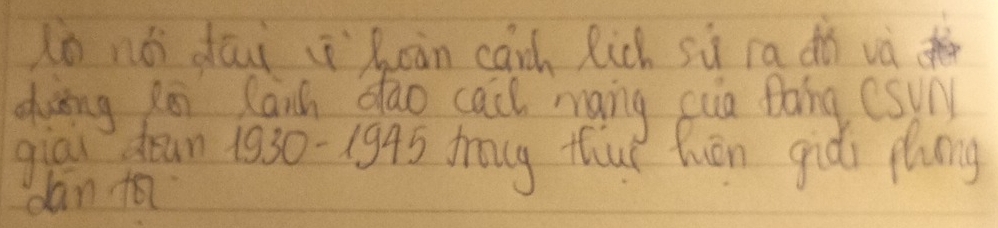 nói hoàn cảnh lịch sử ra đời và
đường lối lãnh đạo cách mạng của Đảng CSVN
giai đoạn 1930-1945 trong thực hiện giải phóng
dân tộc